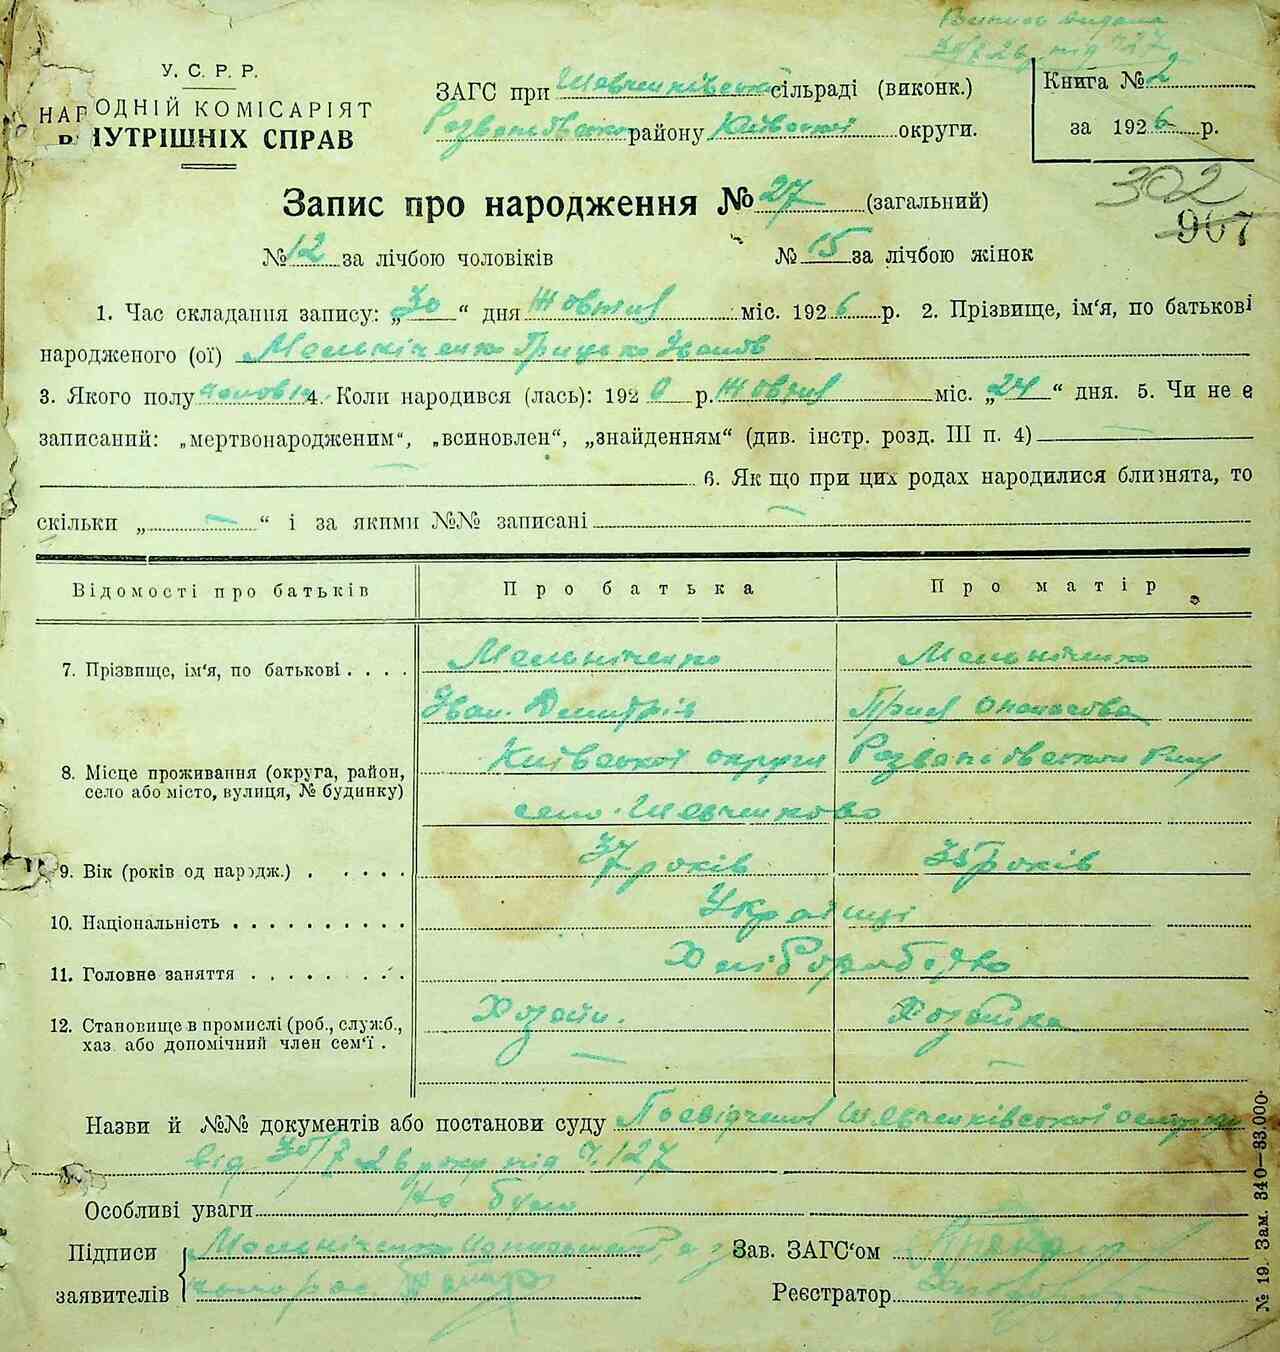 Випись видана
30/X 26 р. під Ч. 127
У. С. Р. Р.
НАРОДНІЙ КОМІСАРІЯТ
ВНУТРІШНІХ СПРАВ
ЗАГС при Шевченківській сільраді (виконк.)
району Київської округи.
Книга № 2
за 1926 р.
302
907
Запис про народження № 27 (загальний)
№ 12 за лічбою чоловіків № 15 за лічбою жінок
1. Час складання запису: „30“ дня Жовтня міс. 1926 р. 2. Прізвище, ім‘я, по батькові
народженого (ої) Мельніченко Грицько Іванов
3. Якого полу чоловіч. 4. Коли народився (лась): 192 р. Жовтня міс. „24“ дня. 5. Чи не є
записаний: „мертвонародженим“, „всиновлен“, „знайденням“ (див. інстр. розд. III п. 4) —
— 6. Як що при цих родах народилися близнята, то
скільки „ — “ і за якими №№ записані —
Відомості про батьків Про батька Про матір
7. Прізвище, ім‘я, по батькові . . . . Мельніченко Мельніченко
Іван Дмитрів
8. Місце проживання (округа, район, Київської округи
село або місто, вулиця, № будинку) село Шевченково
9. Вік (років од народж.) . . . . . 37 років 35 років
10. Національність . . . . . . . . . . Українці
11. Головне заняття . . . . . . . . Хліборобство
12. Становище в промислі (роб., служб., Хозяїн. Хозяйка
хаз. або допомічний член сем‘ї . — —
Назви й №№ документів або постанови суду Посвідчення Шевченківської
від 30/X 26 року під Ч. 127
Особливі уваги Не було
Підписи Мельніченко Зав. ЗАГС‘ом
заявителів Реєстратор
№ 19. Зам. 340—33.000.